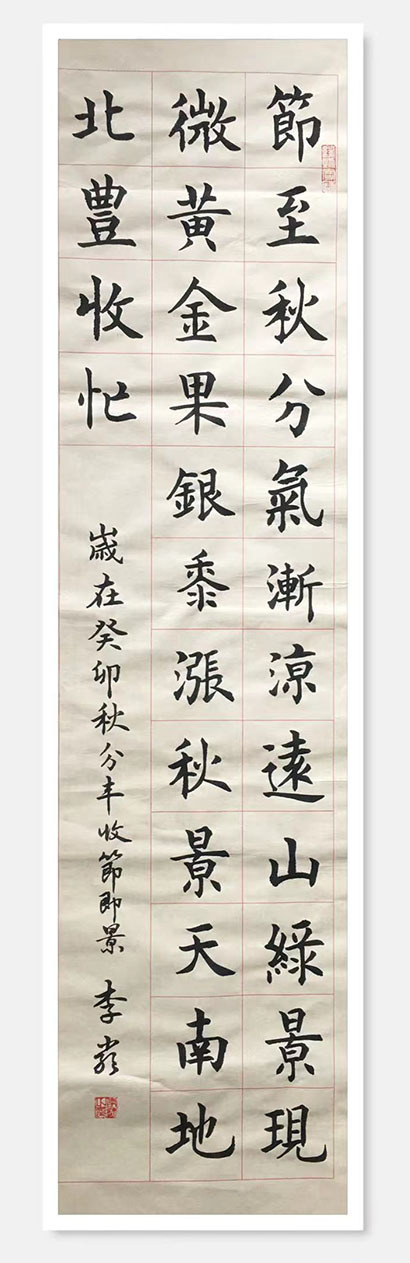 節至秋分氣漸涼遠山綠景現
微黃金果銀黍漲秋景天南地
北豐收忙
歲在癸卯秋分丰收節即景 李